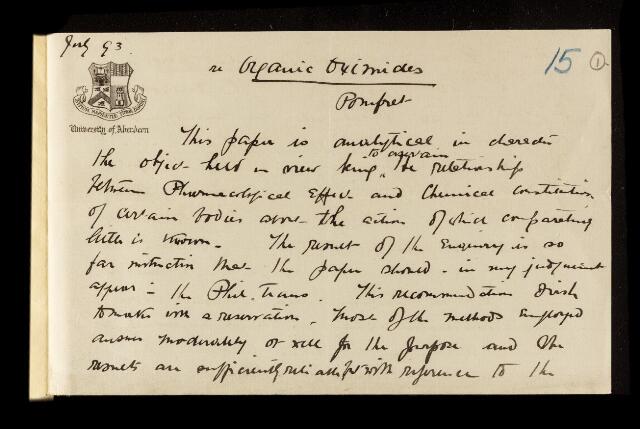 July 93.
15 1
re Organic Oximides
Pomfret
University of Aberdeen
This paper is analytical in character
the object held in view being to ascertain the relationship
between Pharmacological Effect and Chemical constitution
of certain bodies about the action of which comparatively
little is known. The result of the Enquiry is so
far instructive that the paper should in my judgment
appear in the Phil. Trans. This recommendation I wish
to make with a reservation. Most of the methods Employed
answer moderately or well for the purpose and the
results are sufficiently reliable with reference to the